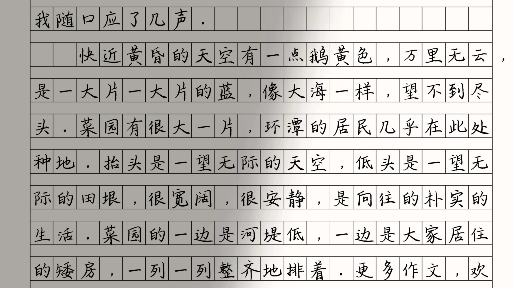 我随口应了几声.
快近黄昏的天空有一点鹅黄色,万里无云,
是一大片一大片的蓝,像大海一样,望不到尽
头.菜园有很大一片,环潭的居民几乎在此处
种地.抬头是一望无际的天空,低头是一望无
际的田垠,很宽阔,很安静,是向往的朴实的
生活.菜园的一边是河堤低,一边是大家居住
的矮房,一列一列整齐地排着.更多作文,欢